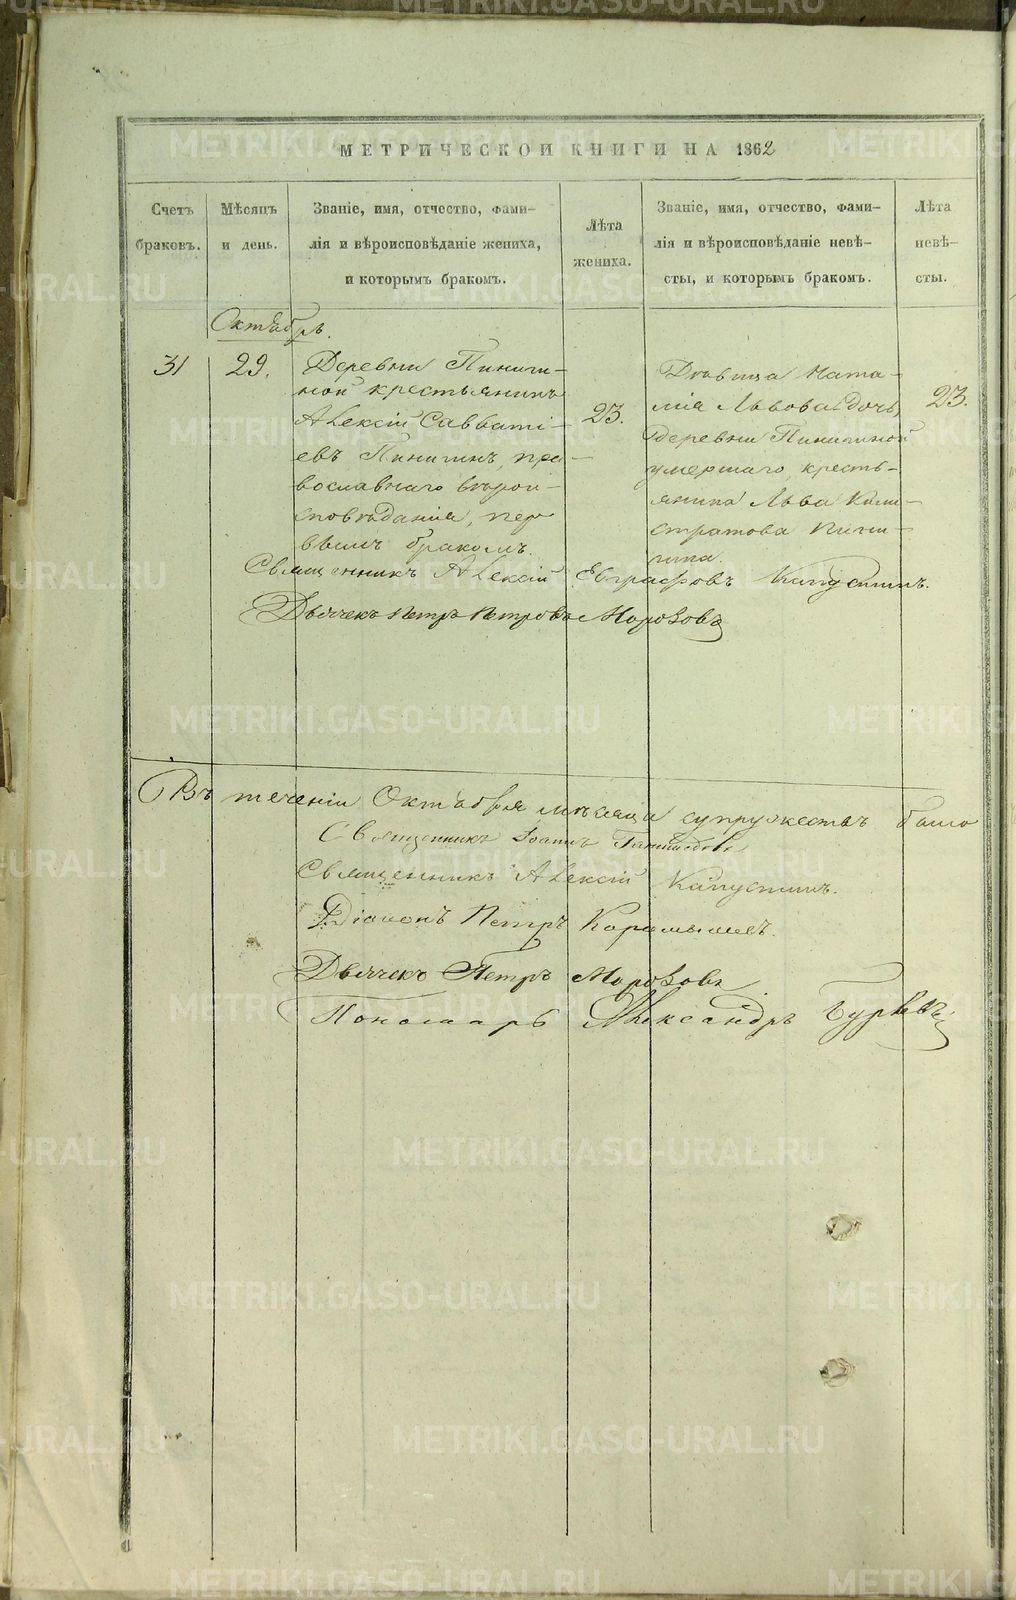 МЕТРИЧЕСКОЙ КНИГИ НА 1862
Счетъ браковъ.
Мѣсяцъ и день.
Званіе, имя, отчество, фами-
лія и вѣроисповѣданіе жениха,
и которымъ бракомъ.
Лѣта жениха.
Званіе, имя, отчество, фами-
лія и вѣроисповѣданіе невѣ-
сты, и которымъ бракомъ.
Лѣта невѣ-
сты.
Октябрь.
31
29.
Деревни Пиниги-
ной крестьянинъ
Алексій Савваті-
евъ Пинигинъ, пра-
вославнаго вѣрои-
сповѣданія, пер
вымъ бракомъ.
23.
Дѣвица Ната-
лія Львова дочь,
деревни Пинигиной
умершаго кресть-
янина Льва Кали-
стратова Пини-
гина
23.
Священникъ Алексій Евграфовъ Капустинъ.
Дьячекъ Петръ Петровъ Морозовъ
Въ теченіи Октября мѣсяца супружествъ было
Священникъ Іоаннъ
Священникъ Алексій Капустинъ.
Діаконъ Петръ Карамышевъ.
Дьячекъ Петръ Морозовъ
Пономарь Александръ
METRIKI.GASO-URAL.RU